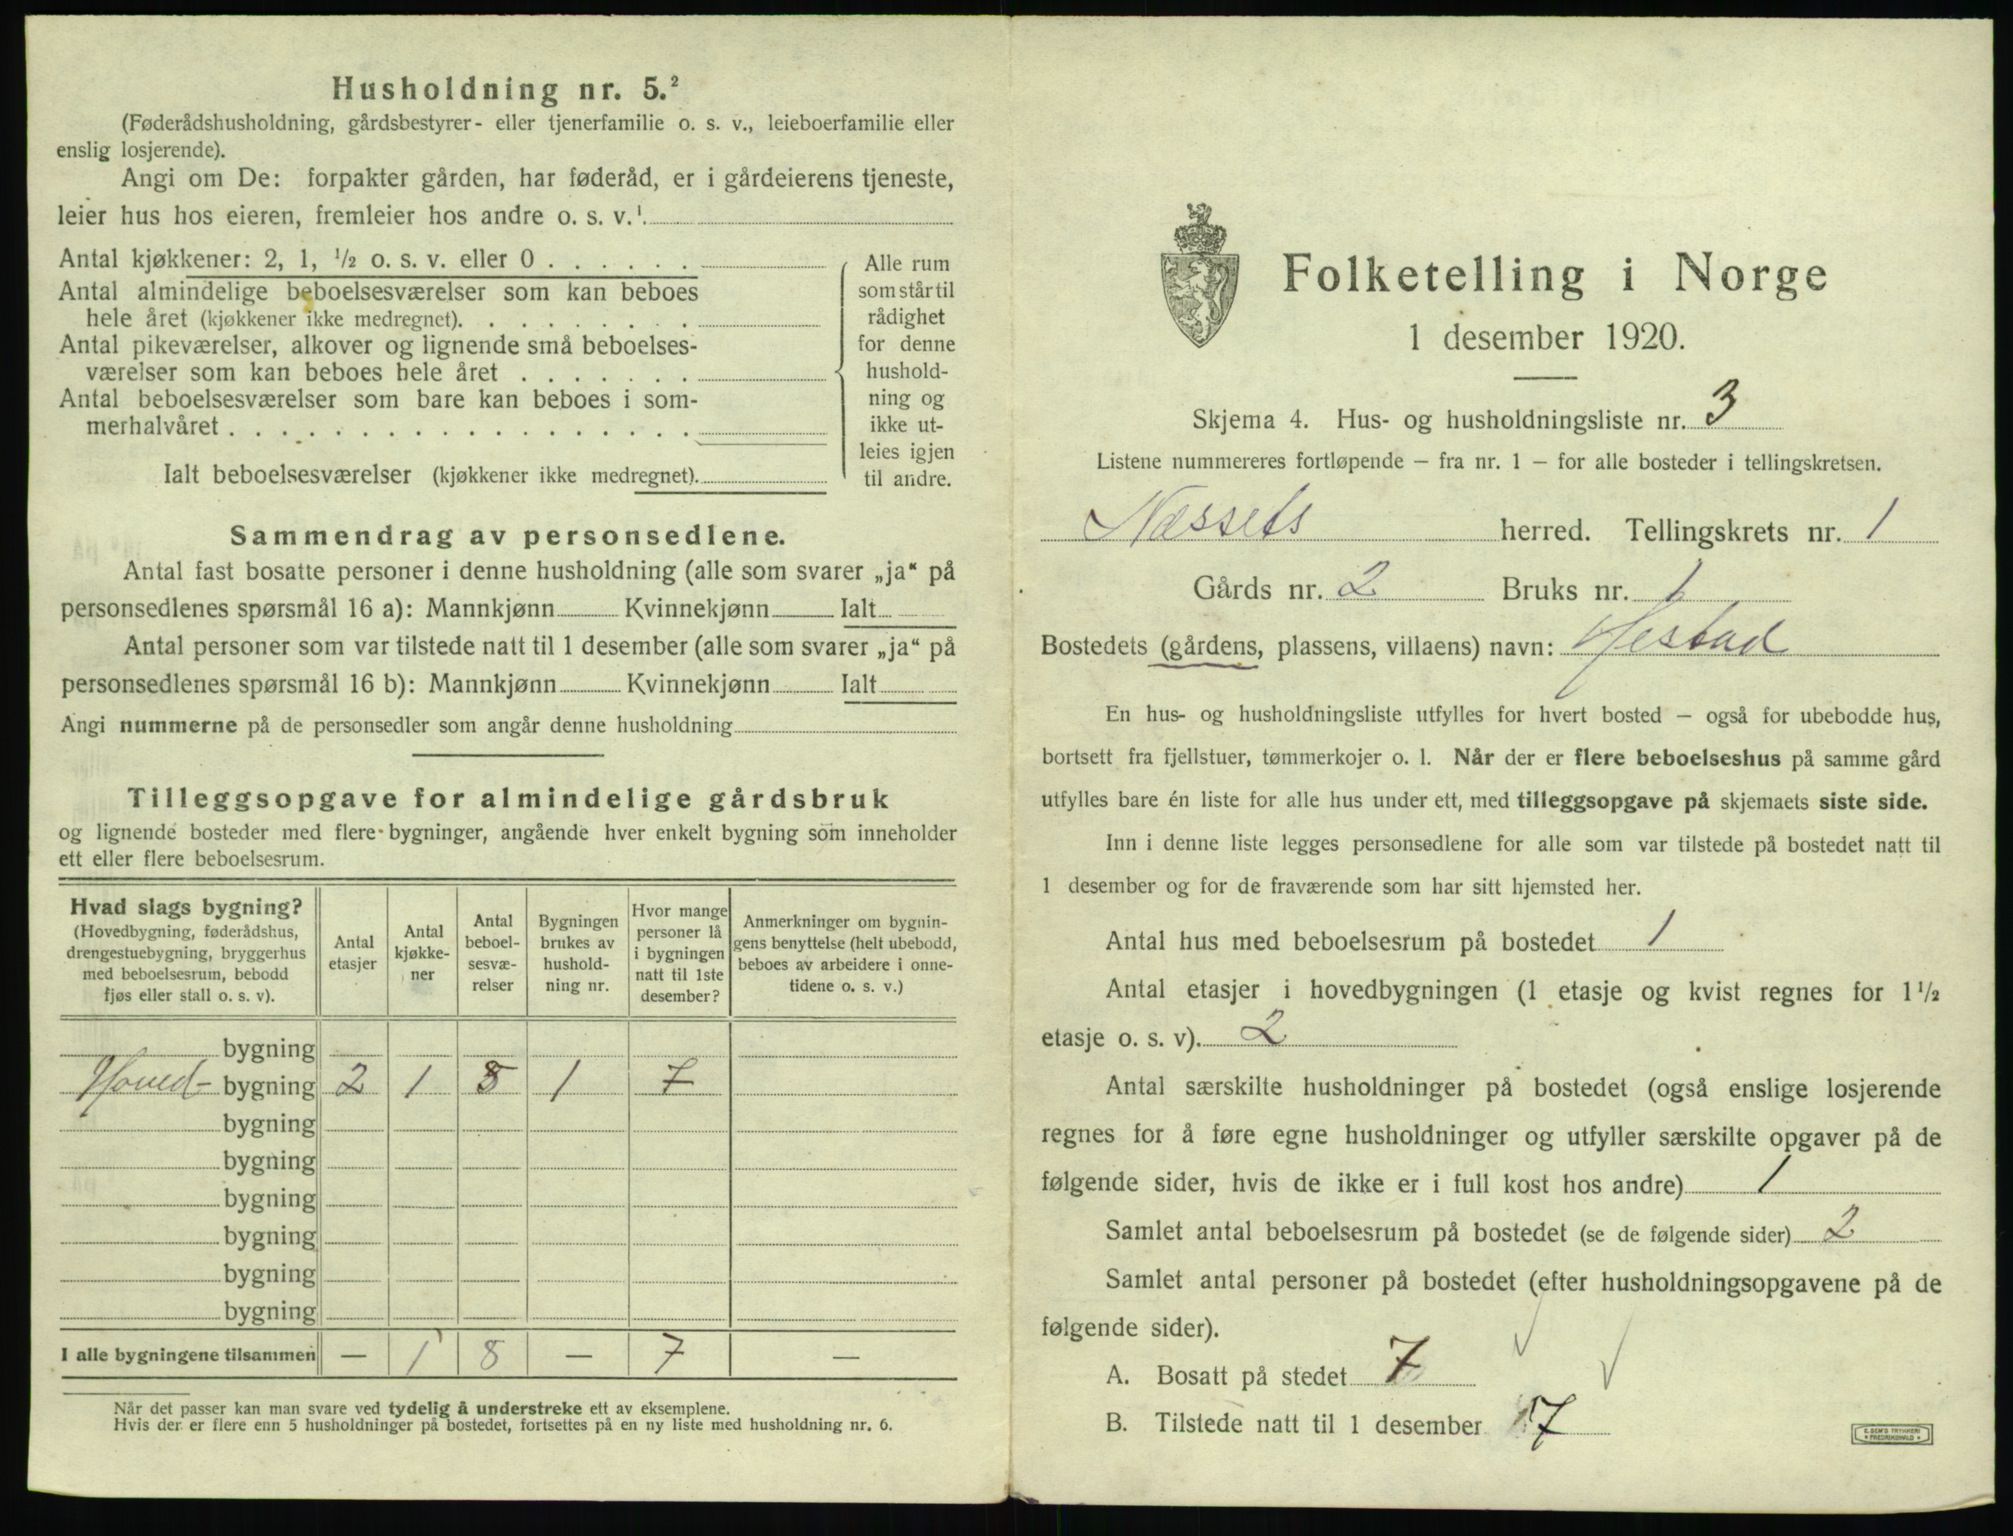 Husholdning nr. 5.²
(Føderådshusholdning, gårdsbestyrer- eller tjenerfamilie o. s. v., leieboerfamilie eller
enslig losjerende).
Angi om De: forpakter gården, har føderåd, er i gårdeierens tjeneste,
leier hus hos eieren, fremleier hos andre o. s. v.¹
Antal kjøkkener: 2, 1, ½ o. s. v. eller 0 . . . . . .
Antal almindelige beboelsesværelser som kan beboes
hele året (kjøkkener ikke medregnet). . . . . . . . .
Antal pikeværelser, alkover og lignende små beboelses-
værelser som kan beboes hele året . . . . . . .
Antal beboelsesværelser som bare kan beboes i som-
merhalvåret . . . . . . . . . . . . . . . . . .
Ialt beboelsesværelser (kjøkkener ikke medregnet).
Alle rum
som står til
rådighet
for denne
hushold-
ning og
ikke ut-
leies igjen
til andre.
Sammendrag av personsedlene.
Antal fast bosatte personer i denne husholdning (alle som svarer „ja“ på
personsedlenes spørsmål 16 a): Mannkjønn Kvinnekjønn Ialt
Antal personer som var tilstede natt til 1 desember (alle som svarer „ja“ på
personsedlenes spørsmål 16 b): Mannkjønn Kvinnekjønn Ialt
Angi nummerne på de personsedler som angår denne husholdning
Tilleggsopgave for almindelige gårdsbruk
og lignende bosteder med flere bygninger, angående hver enkelt bygning som inneholder
ett eller flere beboelsesrum.
Hvad slags bygning?
(Hovedbygning, føderådshus,
drengestuebygning, bryggerhus
med beboelsesrum, bebodd
fjøs eller stall o. s. v).
Antal
etasjer
Antal
kjøkke-
ner
Antal
beboel-
sesvæ-
relser
Bygningen
brukes av
hushold-
ning nr.
Hvor mange
personer lå
i bygningen
natt til 1ste
desember?
Anmerkninger om bygnin-
gens benyttelse (helt ubebodd,
beboes av arbeidere i onne-
tidene o. s. v.)
bygning
Hoved- bygning 2 1 8 1 7
bygning
bygning
bygning
bygning
bygning
bygning
I alle bygningene tilsammen — 1 8 — 7 —
Når det passer kan man svare ved tydelig å understreke ett av eksemplene.
Hvis der er flere enn 5 husholdninger på bostedet, fortsettes på en ny liste med husholdning nr. 6.
Folketelling i Norge
1 desember 1920.
Skjema 4. Hus- og husholdningsliste nr. 3
Listene nummereres fortløpende — fra nr. 1 — for alle bosteder i tellingskretsen.
Næssets herred. Tellingskrets nr. 1
Gårds nr. 2 Bruks nr. 1
Bostedets (gårdens, plassens, villaens) navn: Hestad
En hus- og husholdningsliste utfylles for hvert bosted — også for ubebodde hus,
bortsett fra fjellstuer, tømmerkojer o. l. Når der er flere beboelseshus på samme gård
utfylles bare én liste for alle hus under ett, med tilleggsopgave på skjemaets siste side.
Inn i denne liste legges personsedlene for alle som var tilstede på bostedet natt til
1 desember og for de fraværende som har sitt hjemsted her.
Antal hus med beboelsesrum på bostedet 1
Antal etasjer i hovedbygningen (1 etasje og kvist regnes for 1½
etasje o. s. v). 2
Antal særskilte husholdninger på bostedet (også enslige losjerende
regnes for å føre egne husholdninger og utfyller særskilte opgaver på de
følgende sider, hvis de ikke er i full kost hos andre) 1
Samlet antal beboelsesrum på bostedet (se de følgende sider) 2
Samlet antal personer på bostedet (efter husholdningsopgavene på de
følgende sider).
A. Bosatt på stedet 7
B. Tilstede natt til 1 desember 7
E. SEM'S TRYKKERI
FREDRIKSHALD